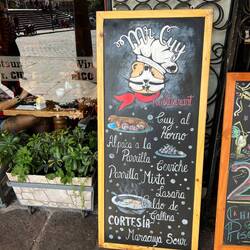 Mr. Cuy
Restaurant
Cuy al
Horno
Alpaca a la
Parrilla
Ceviche
Parrilla Mixta
Lasaña
Caldo de
Gallina
CORTESÍA
Maracuya Sour